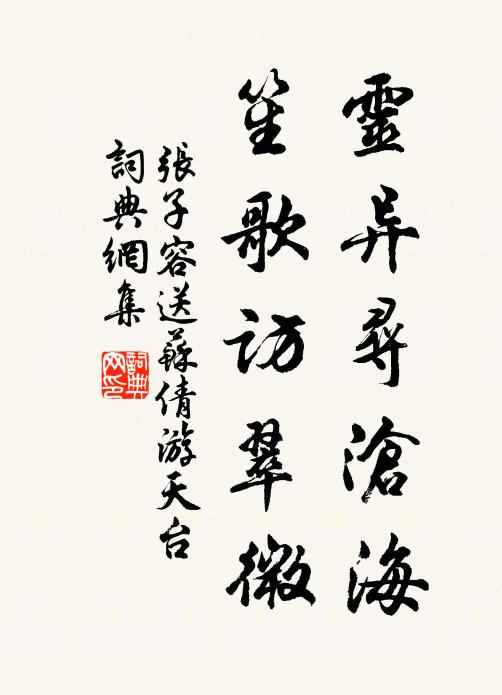 靈异尋滄海
笙歌訪翠微
張子容送蘇倩游天台
詞典網集
詞典
网印